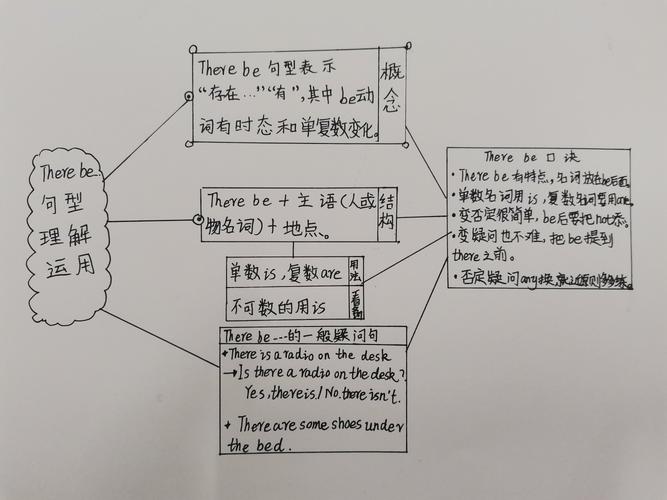 There be...
句型
理解
运用
There be 句型表示
“存在...”“有”,其中be动
词有时态和单复数变化。
概念
There be + 主语(人或
物名词)+ 地点。
结构
单数is,复数are
不可数的用is
用法
There be ...的一般疑问句
There is a radio on the desk
→Is there a radio on the desk?
Yes, there is. / No. there isn't.
* There are some shoes under
the bed.
There be 口诀
·There be 有特点,名词放在be后面。
·单数名词用is,复数名词要用are。
·变否定很简单,be后要把not添。
·变疑问也不难,把be提到
there之前。
·否定疑问any换